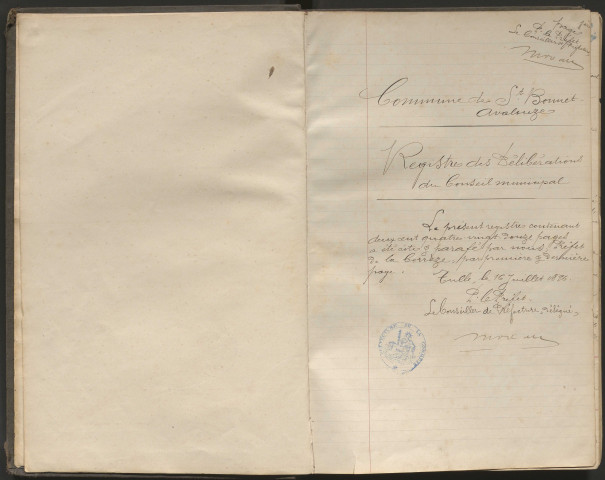 P. le Préfet
Le Conseiller
Commune de St Bonnet
Avalouze
Registre des Délibérations
du Conseil municipal
Le présent registre contenant
deux cent quatre vingt douze pages
a été coté & parafé par nous, Préfet
de la Corrèze, par première & dernière
page.
Tulle, le 16 Juillet
P. le Préfet
Le Conseiller de Préfecture, délégué